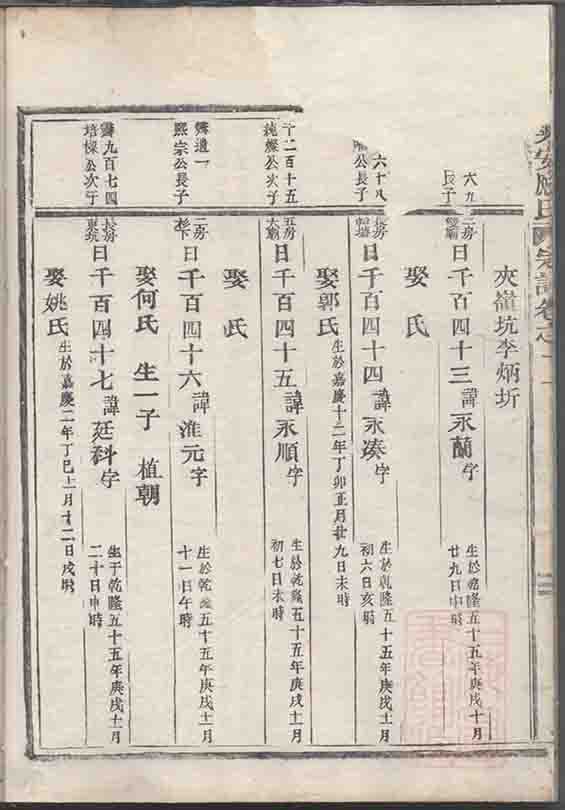 宗譜卷之
夾嶺坑李炳圻
長子
二房
日千百四十三諱永蘭字
生於乾隆五十五年庚戌十月
廿九日申時
娶 氏
六十八
公長子
長房
日千百四十四諱永湊字
生於乾隆五十五年庚戌十一月
初六日亥時
娶郭氏
生於嘉慶十二年丁卯正月廿
九日未時
十二百十五
公次子
五房
日千百四十五諱永順字
生於乾隆五十五年庚戌十一月
初七日未時
娶 氏
遺一
熙宗公長子
二房
日千百四十六諱淮元字
生於乾隆五十五年庚戌十一月
十一日午時
娶何氏 生一子 植朝
九百七四
公次子
長房
日千百四十七諱廷科字
生于乾隆五十五年庚戌十一月
二十日申時
娶姚氏
生於嘉慶二年丁巳十一月十二日戌時